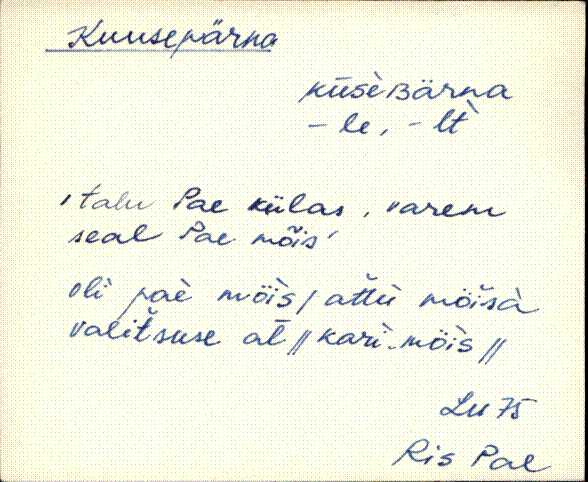 Kuusepärna
kūsèʙärna
– le, – lt̀
'talu Pae külas, varem
seal Pae mõis'
oli paè mȭis / at̆tü mȭisà
valit̆suse al // karì-mȭis //
Lu 75
Ris Pae